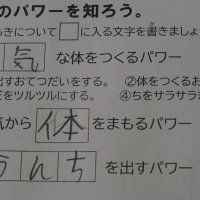 のパワーを知ろう。
きについて□に入る文字を書きましょ
気な体をつくるパワー
出すおてつだいをする。 ②体をつくるお
をツルツルにする。 ④ちをサラサラ
気から体をまもるパワー
うんちを出すパワー